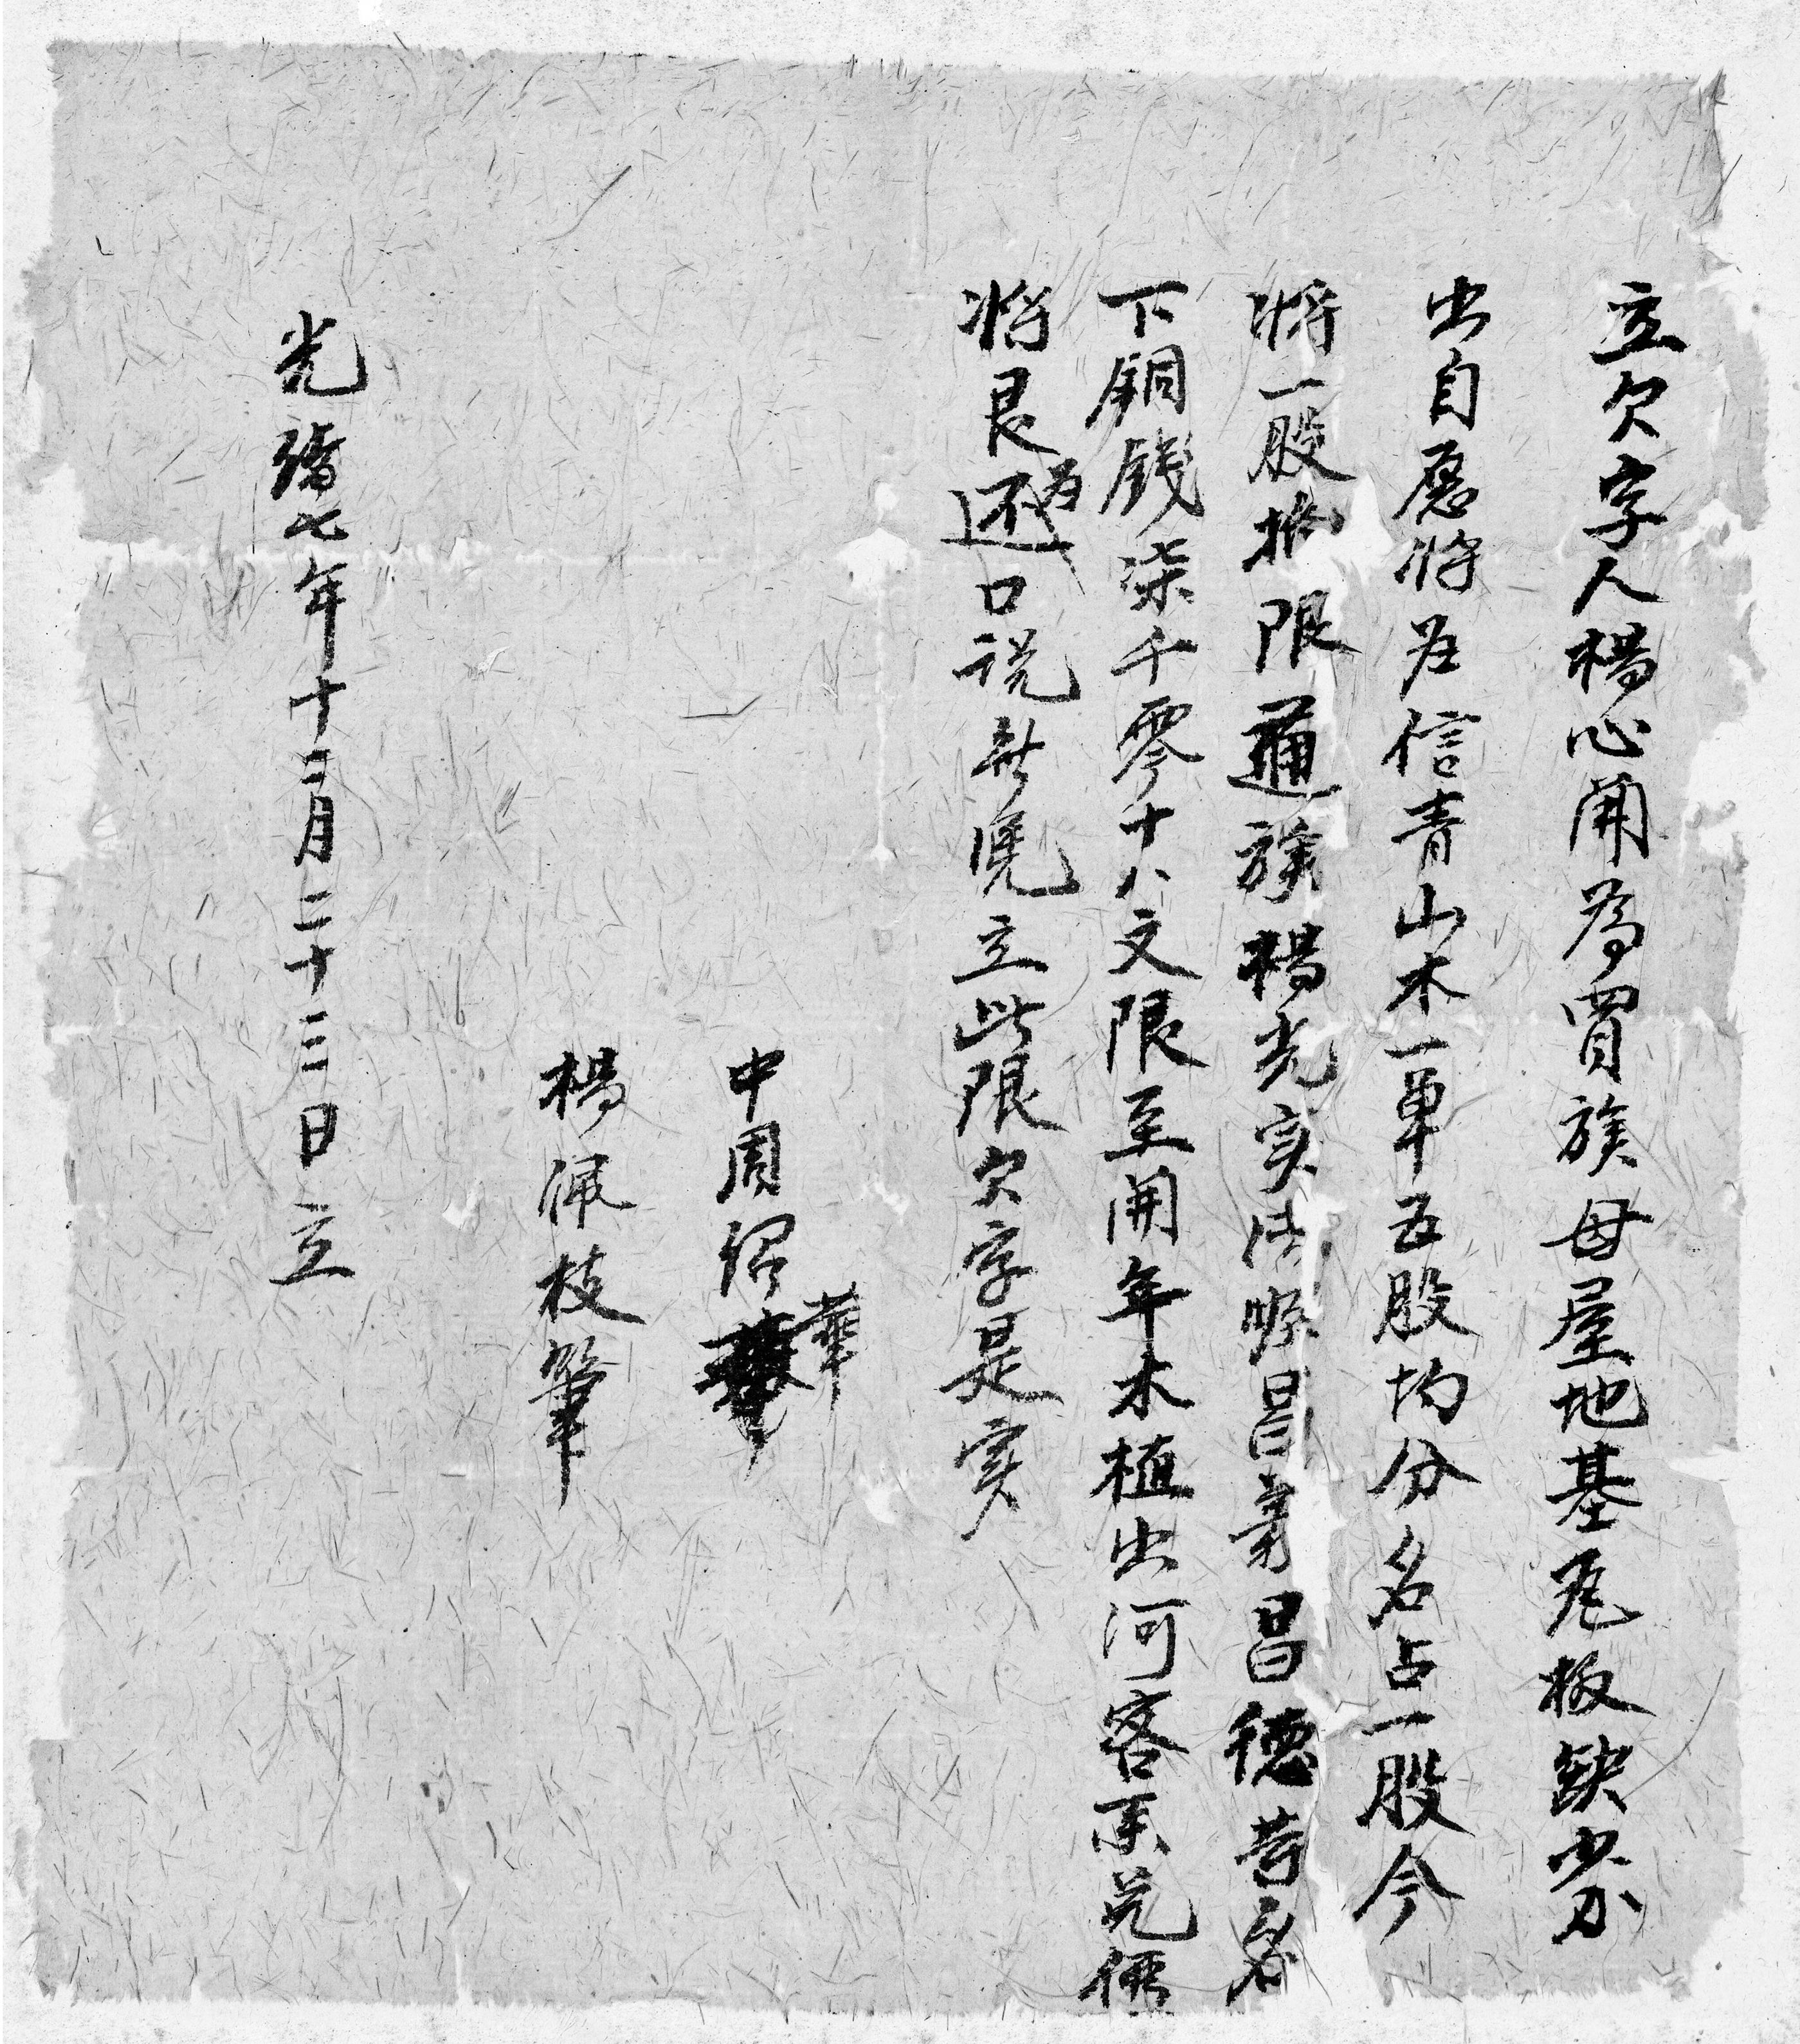 立欠字人楊心開為買族母屋地基瓦板缺少
出自愿将在信青山木一單五股均分名占一股今
将一股抵限通族楊光实洪順昌秀昌德昔名
下銅錢柒千零十八文限至開年木植出河客來兑価
将艮还为口説無凴立此限欠字是实
中周紹華
楊佩枝筆
光緒七年十二月二十三日立